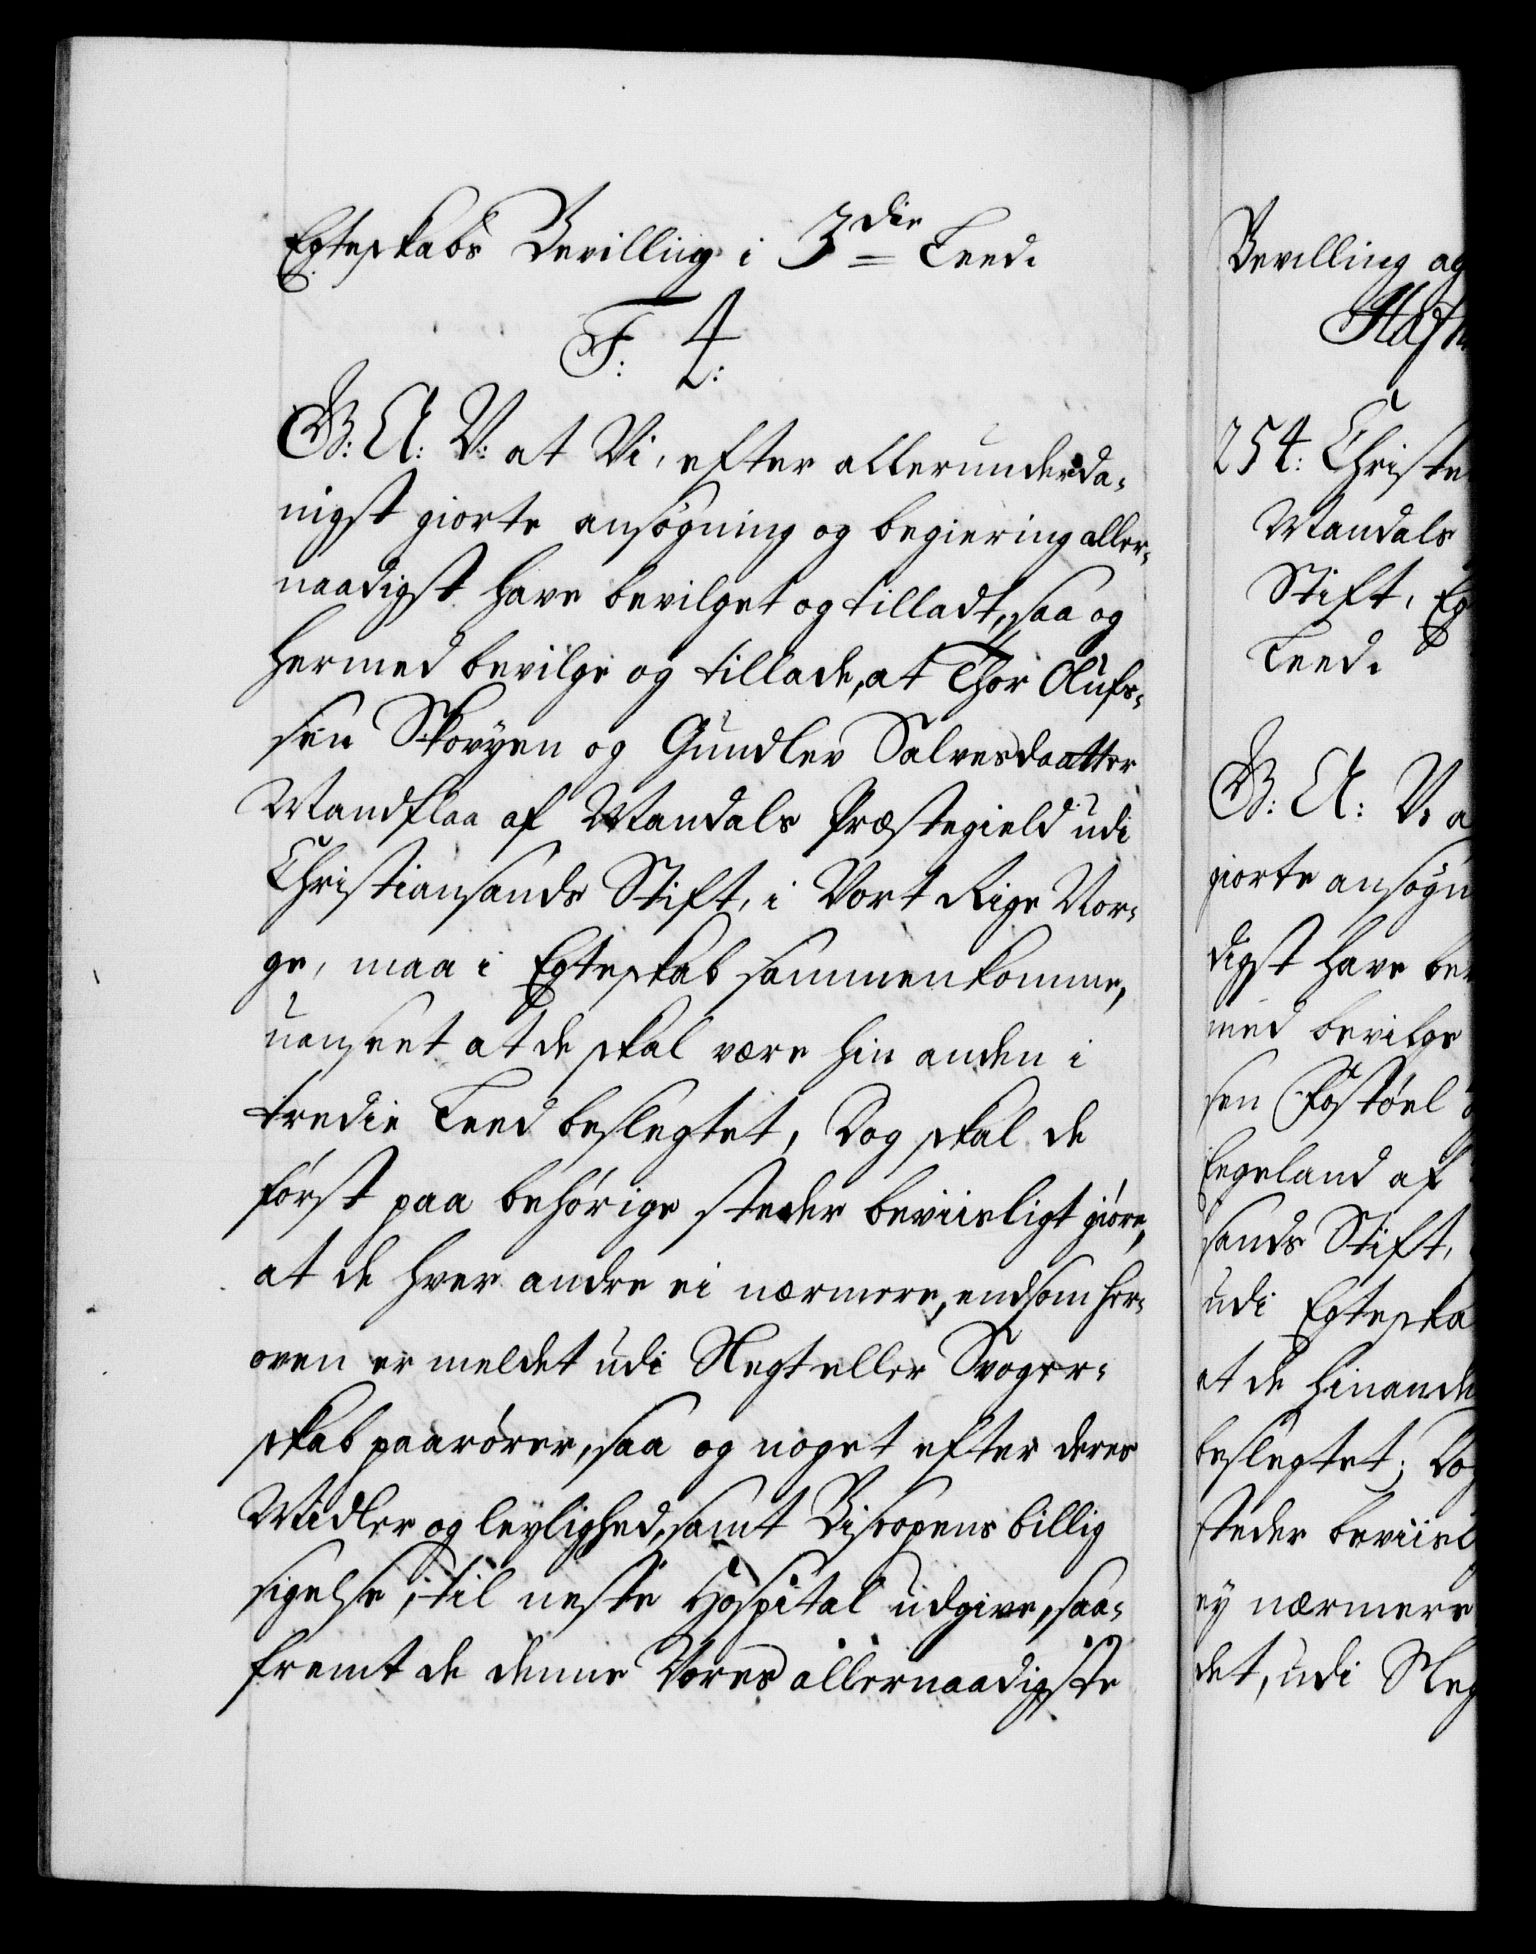 Egteskabs Bevilling i 3die Leed.
F: 4:
G: A: V: at Vi, efter allerunderda-
nigst giorte ansøgning og begiering aller-
naadigst have bevilget og tilladt, saa og
hermed bevilge og tillade, at Thor Olufs-
søn Skovyen og Gundlev Salvesdaatter
Mandflaa af Mandals Præstegield udi
Christiansands Stift, i Vort Rige Nor-
ge, maa i Egteskab sammenkomme,
uanseet at de skal være hin anden i
tredie Leed beslegtet, Dog skal de
først paa behørige steder beviisligt giøre,
at de hver andre ei nærmere, end som her-
oven er meldet udi Slegt eller Svoger-
skab paarører, saa og noget efter deres
Midler og leylighed, samt Biscopens billig
sigelse, til neste Hospital udgive, saa-
fremt de denne Vores allernaadigste
Bevilling og
Hafn
254: Christe
Mandals
Stift, Eg
Leed.
G: A: V: a
giorte ansøgn
digst have bev
med bevilge
søn Fostøel
Eegeland af
sands Stift,
udi Egteska
at de hinande
beslegtet; Dog
steder beviisl
ey nærmere
det, udi Sleg